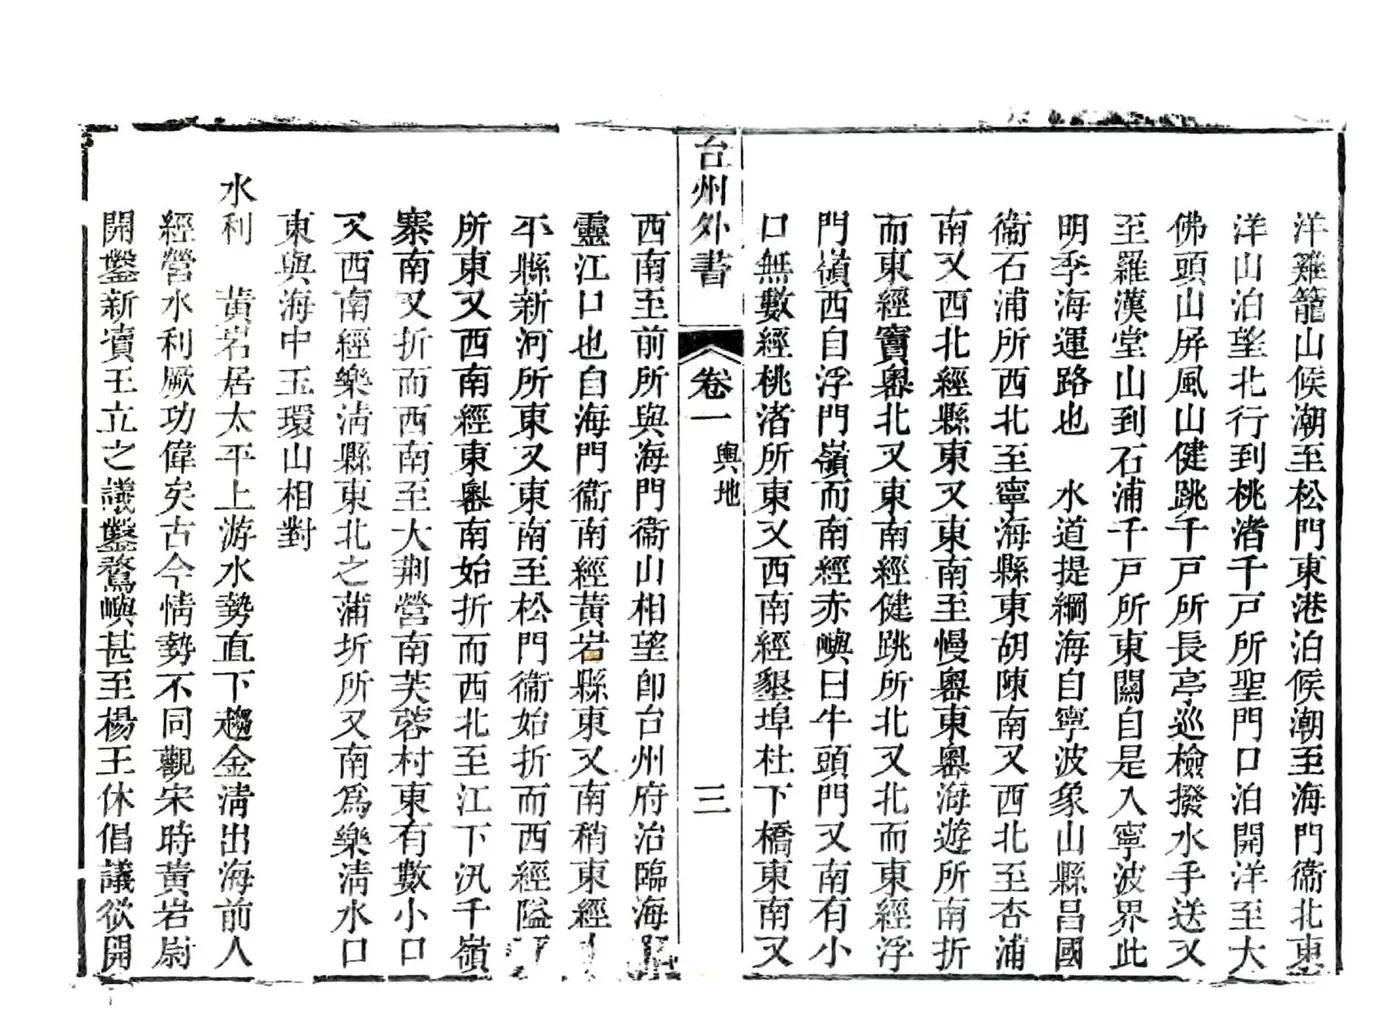 洋雞籠山候潮至松門東港泊候潮至海門衞北東
洋山泊望北行到桃渚千戸所聖門口泊開洋至大
佛頭山屏風山健跳千戸所長亭巡檢撥水手送又
至羅漢堂山到石浦千戸所東關自是入寧波界此
明季海運路也　水道提綱海自寧波象山縣昌國
衞石浦所西北至寧海縣東胡陳南又西北至杏浦
南又西北經縣東又東南至慢嶴東嶴海遊所南折
而東經竇嶴北又東南經健跳所北又北而東經浮
門嶺西自浮門嶺而南經赤嶼曰牛頭門又南有小
口無數經桃渚所東又西南經墾埠杜下橋東南又
台州外書
卷一
輿地
三
西南至前所與海門衞山相望卽台州府治臨海
靈江口也自海門衞南經黃岩縣東又南稍東經
平縣新河所東又東南至松門衞始折而西經隘
所東又西南經東嶴南始折而西北至江下汛千嶺
寨南又折而西南至大荆營南芙蓉村東有數小口
又西南經樂淸縣東北之蒲圻所又南爲樂淸水口
東與海中玉環山相對
水利　黃岩居太平上游水勢直下趨金淸出海前人
經營水利厥功偉矣古今情勢不同觀宋時黃岩尉
開鑿新瀆王立之議鑿鶩嶼甚至楊王休倡議欲開